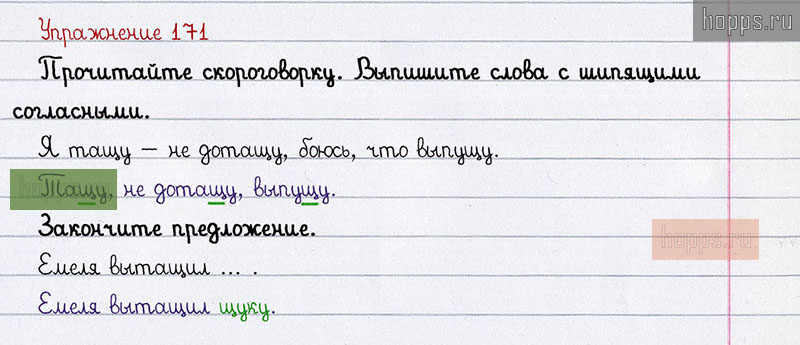 hopps.ru
Упражнение 171
Прочитайте скороговорку. Выпишите слова с шипящими
согласными.
Я тащу – не дотащу, боюсь, что выпущу.
Тащу, не дотащу, выпущу.
Закончите предложение.
hopps.ru
Емеля вытащил ... .
Емеля вытащил щуку.